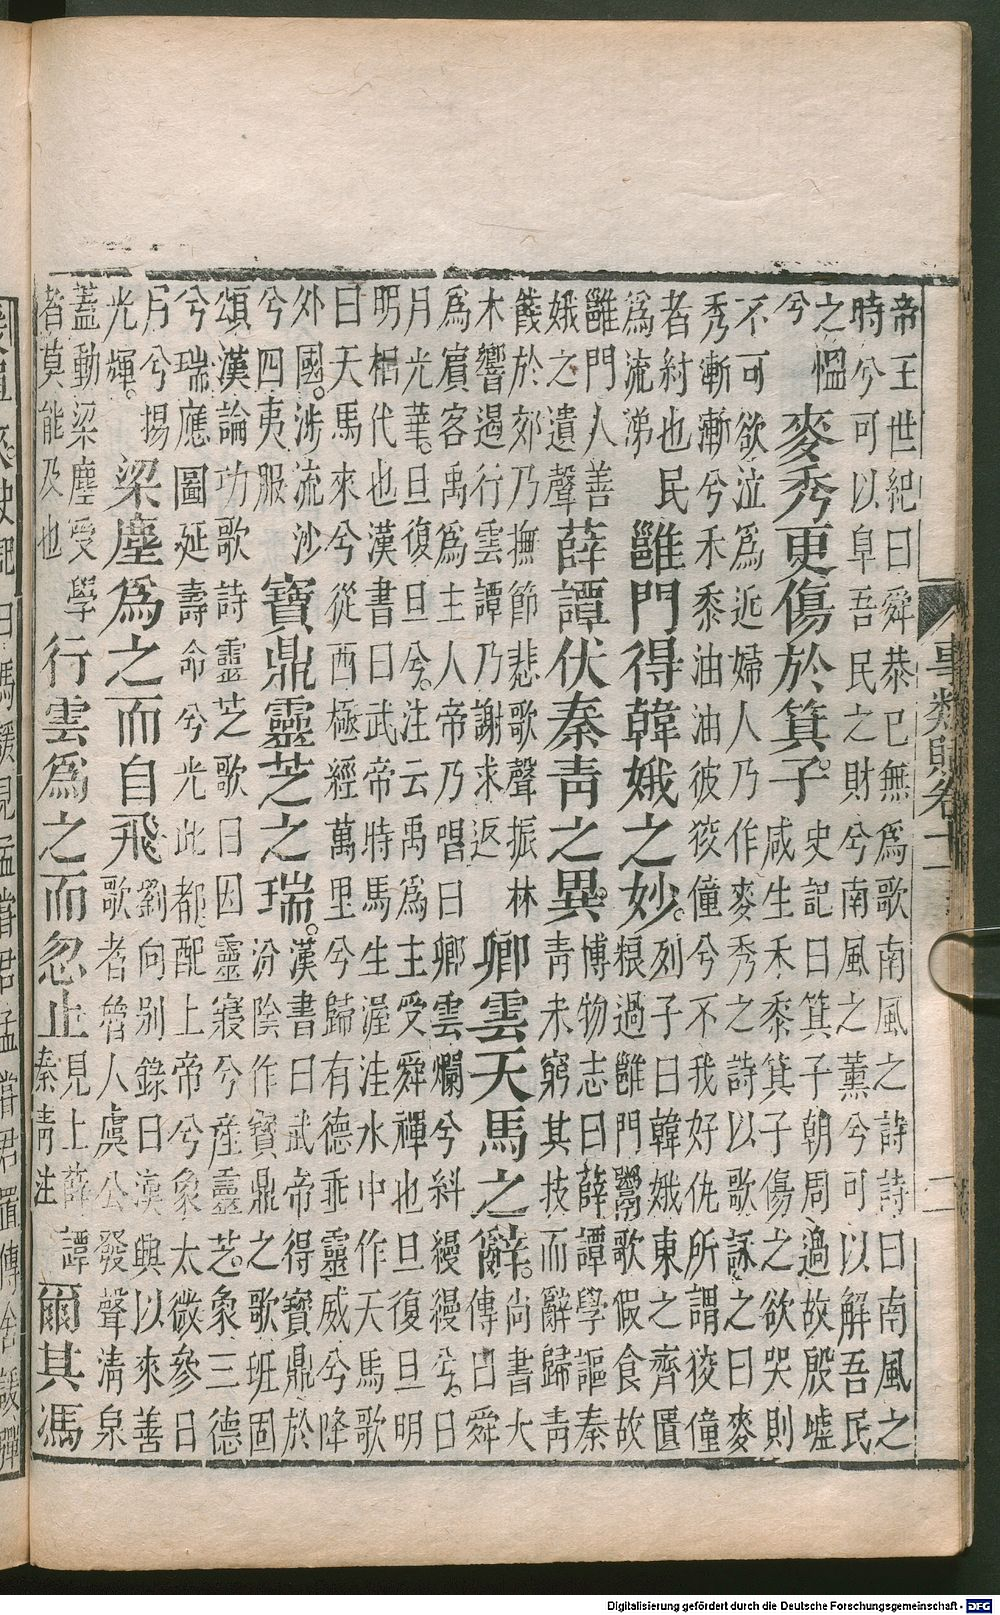 事類賦卷十一
二
帝王世紀曰舜恭巳無為歌南風之詩詩曰南風之
時兮可以阜吾民之財兮南風之薰兮可以解吾民
之慍
兮
麥秀更傷於箕子。
史記曰箕子朝周過故殷墟
咸生禾黍箕子傷之欲哭則
不可欲泣為近婦人乃作麥秀之詩以歌詠之曰麥
秀漸漸兮禾黍油油彼狡僮兮不我好仇所謂狡僮
者紂也民
為流涕
雝門得韓娥之妙。
列子曰韓娥東之齊匱
糧過雝門鬻歌假食故
雝門人善
娥之遺聲
薛譚伏秦青之異。
博物志曰薛譚學謳秦
青未窮其技而辭歸青
餞於郊乃撫節悲歌聲振林
木響遏行雲譚乃謝求返
卿雲天馬之辭。
尚書大
傳曰舜
為賔客禹為主人帝乃唱曰卿雲爛兮糾縵縵兮。日
月光華。旦復旦兮。注云禹為主受舜禪也旦復旦明
明相代也漢書曰武帝時馬生渥洼水中作天馬歌
曰天馬來兮從西極經萬里兮歸有德乖靈威兮降
外國。涉流沙
兮四夷服
寶鼎靈芝之瑞。
漢書曰武帝得寶鼎於
汾陰作寶鼎之歌班固
頌漢論功歌詩靈芝歌曰因靈寢兮產靈芝。象三德
兮瑞應圖延壽命兮光此都配上帝兮象太微參日
月兮揚
光輝。
梁塵為之而自飛
劉向别錄曰漢興以來善
歌者魯人虞公發聲清泉
蓋動梁塵受學
者莫能及也
行雲為之而忽止
見上薛譚
秦青注
爾其馮